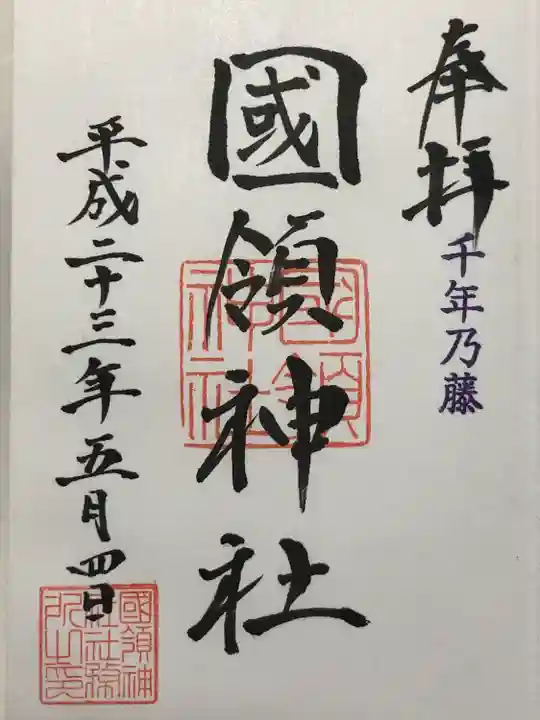 奉拝
千年乃藤
國領神社
國領神社
平成二十三年五月四日
國領神社社務所之印